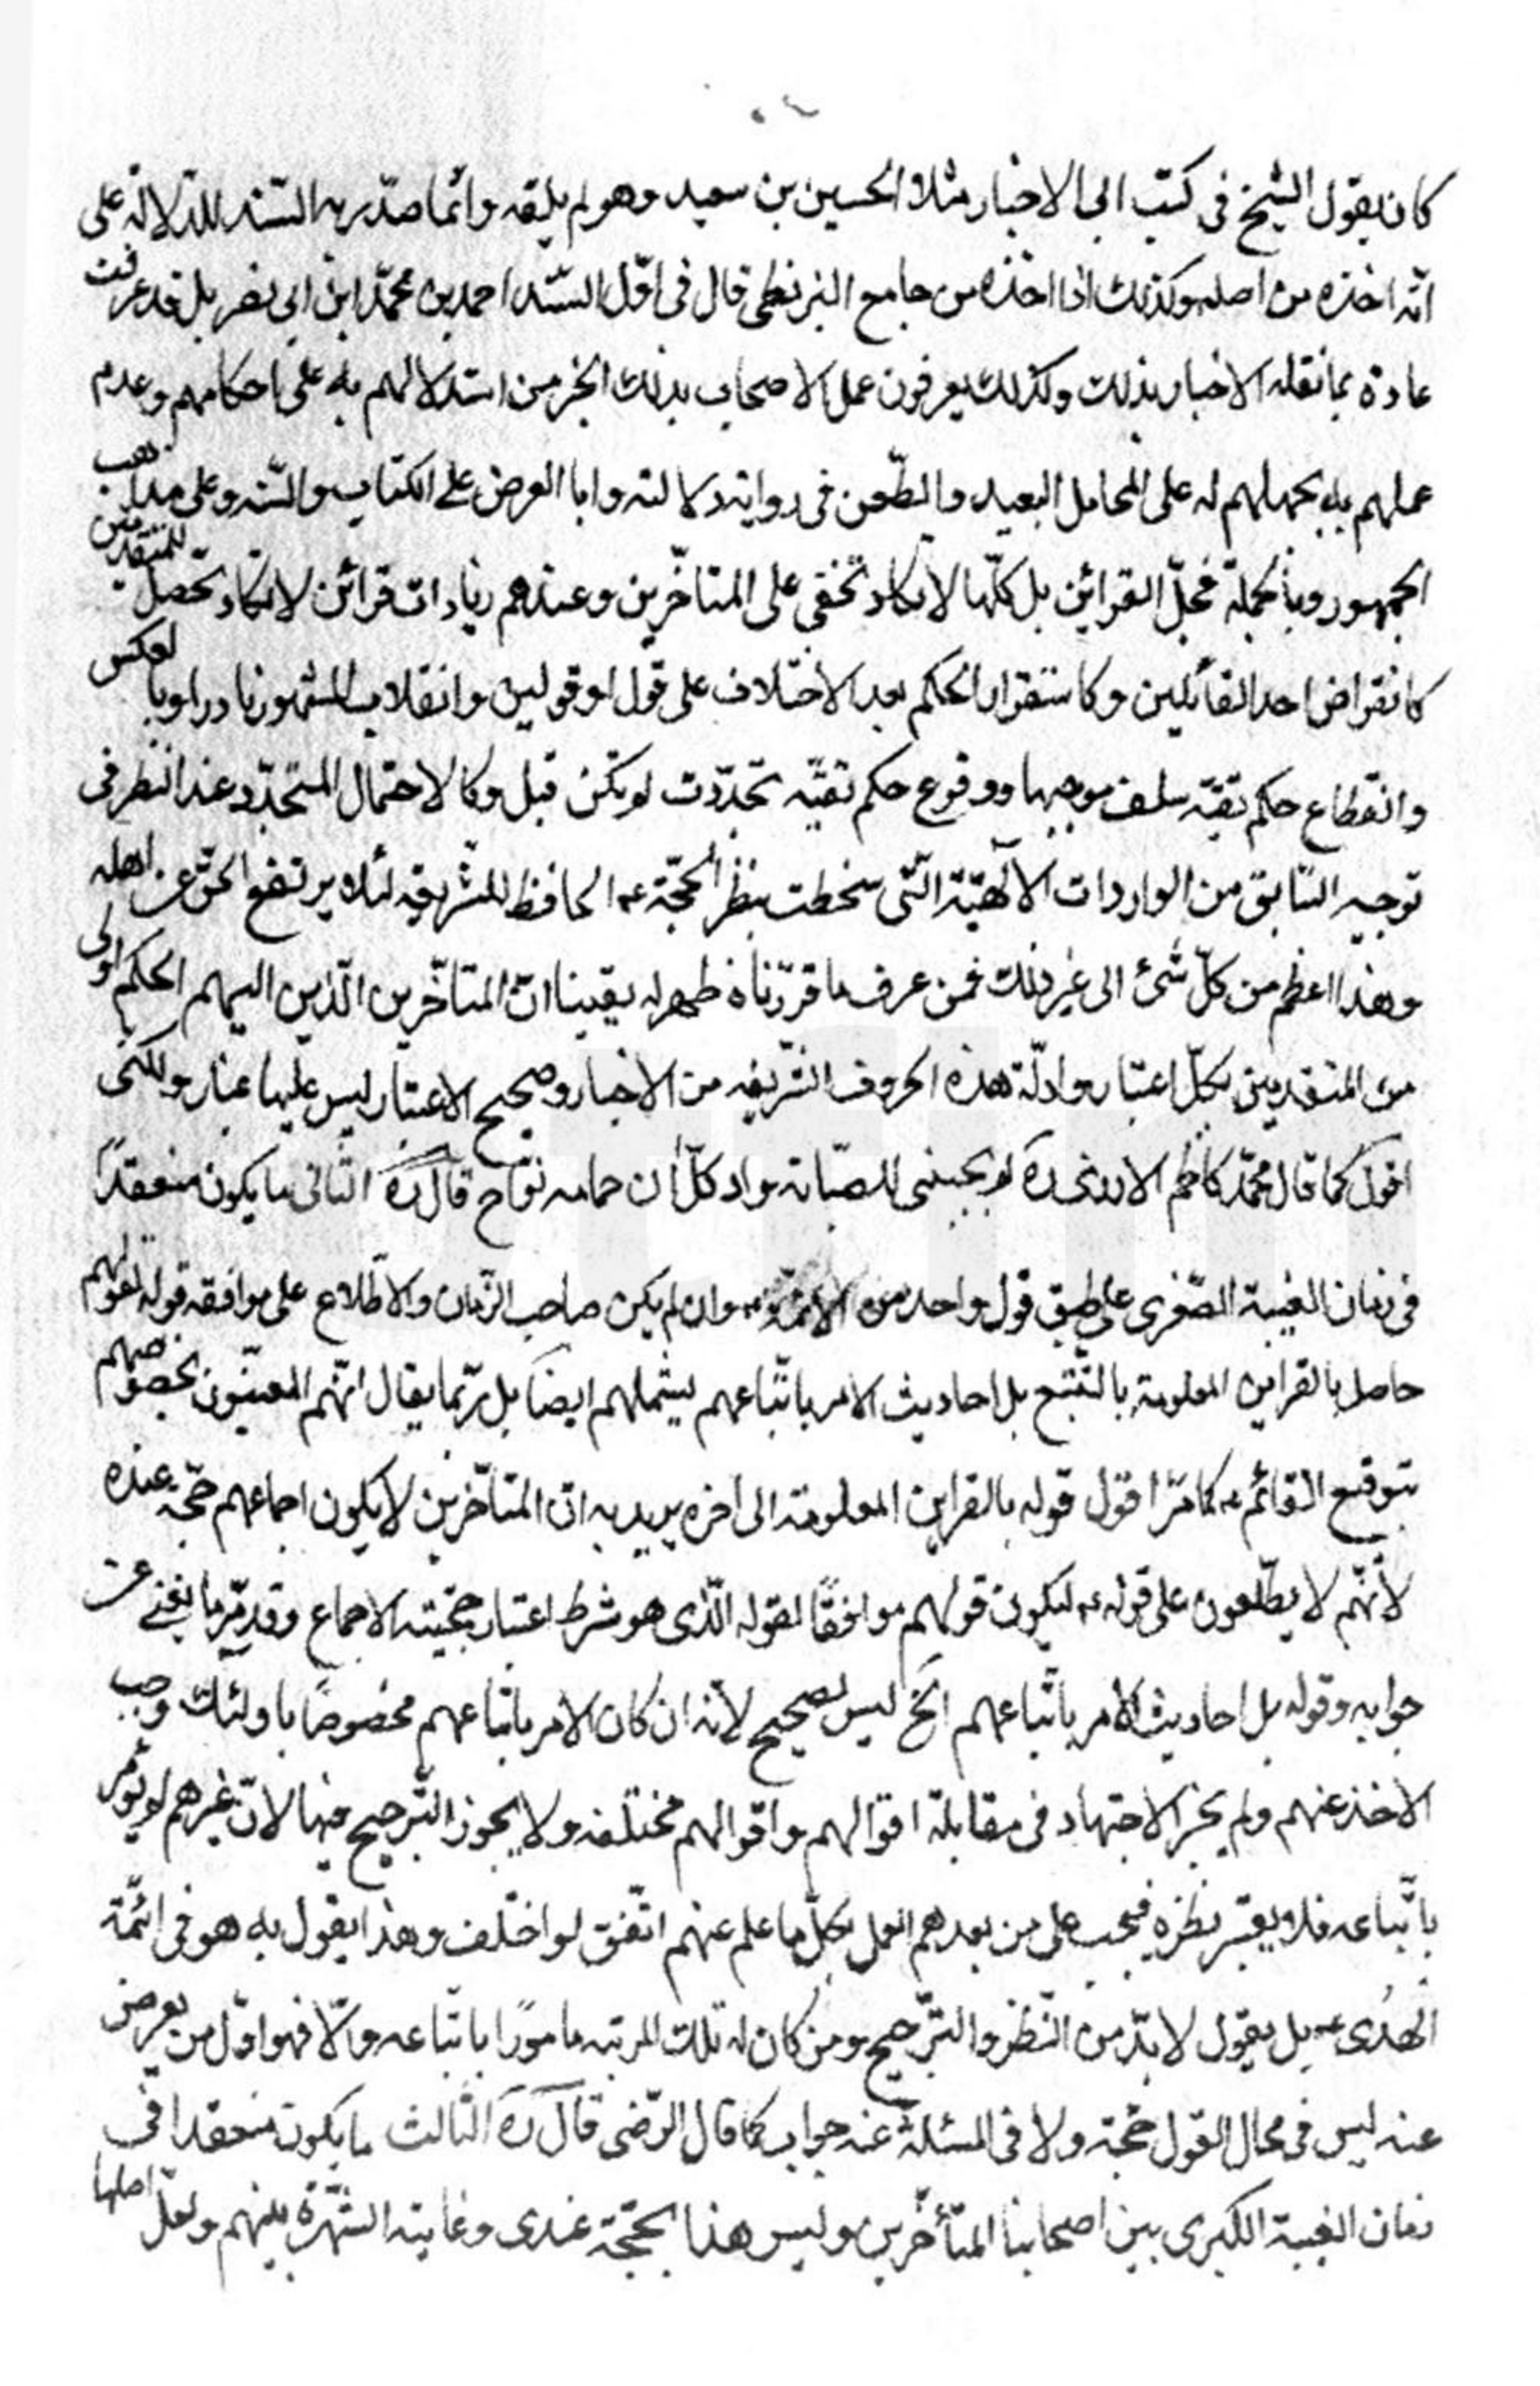 كان يقول الشيخ فى كتب الى الاخبار مثلا الحسين بن سعيد وهو لم يلقه وانّما صدّر به السّند للدّلالة على
انّه اخذه من اصله وكذلك اذا اخذه من جامع البزنطى قال فى اوّل السّند احمد بن محمّد ابن ابى نصر بل قد عرفت
عادة بما نقله الاخبار بذلك وكذلك يعرفون عمل الاصحاب بذلك الخبر من استدلالهم به على احكامهم وعدم
عملهم به بحملهم له على المحامل البعيد والطّعن فى رواية دلالته وابا العرض على الكتاب والسّنه وعلى مذاهب
الجمهور وبالجملة فجلّ القرائن بل كلّها لا تكاد تخفى على المتاخّرين وعندهم زيادات قرائن لا تكاد تحصل للمتقدّمين
كانقراض احد القائلين وكاستقرار الحكم بعد الاختلاف على قول او قولين وانقلاب المشهور نادرا وبالعكس
وانقطاع حكم تقيّه سلف موجبها ووقوع حكم تقيّه تجدّدت لو تكن قبل وكالاحتمال المتجدّد عند النظر فى
توجيه السّابق من الواردات الالٓهيّة الّتى سخطت بنظر الحجّة ع الحافظ للشريعه لئلا يرتفع الحقّ عن اهله
وهذا اعظم من كلّ شئ الى غير ذلك فمن عرف ما قرّرناه ظهر له يقينا انّ المتاخّرين الّذين اليهم الحكم اولى
من المتقدمين بكلّ اعتبار وادلّة هذه الحروف الشّريفه من الاخبار وصحيح الاعتبار ليس عليها غبار ولكنّى
اقول كما قال محمّد كاظم الازرى رَه لو يجبنى للصبّابة واد كلّ ان حمامه نوّاح قال رَه الثّانى ما يكون منعقدًا
فى زمان الغيبة الصّغرى على طبق قول واحد من الائمّة ع وان لم يكن صاحب الزّمان والاطّلاع على موافقه قوله لقولهم
حاصل بالقراين المعلومة بالتّتبع بل احاديث الامر باتّباعهم يشملهم ايضا بل ربّما يقال انّهم المعنيّون بخصوصهم
بتوقيع القائم ع كما مرّ اقول قوله بالقراين المعلومة الى اخره يريد به انّ المتاخّرين لا يكون اجماعهم حجّة عنده
لأنّهم لا يطّلعون على قوله ع ليكون قولهم موافقًا لقوله الّذى هو شرط اعتبار حجّيته الاجماع وقد مرّ ما يغنى عن
جوابه وقوله بل احاديث الأمر باتّباعهم الخ ليس بصحيح لأنه ان كان الامر باتباعهم مخصوصًا باولئك وجب
الاخذ عنهم ولم يجز الاجتهاد فى مقابلة اقوالهم واقوالهم مختلفه ولا يجوز التّرجيح فيها لانّ غيرهم لو يؤمر
باتّباعه فلا يعتبر نظره فيجب على من بعدهم العمل بكلّ ما علم عنهم اتّفق لو اختلف وهذا يقول به هو فى ائمّة
الهُدى ع بل يقول لا بدّ من النّظر والتّرجيح ومن كان له تلك المرتبه مامورًا باتّباعه والّا فهو اوّل من يعرض
عنه ليس فى مجال القول حجّة ولا فى المسئلة عنه جواب كما قال الرّضى قال رَه الثّالث ما يكون منعقدا فى
زمان الغيبة الكبرى بين اصحابنا المتأخّرين وليس هذا بحجّة عندى وغايته الشّهرة بينهم ولعلّ اصلها